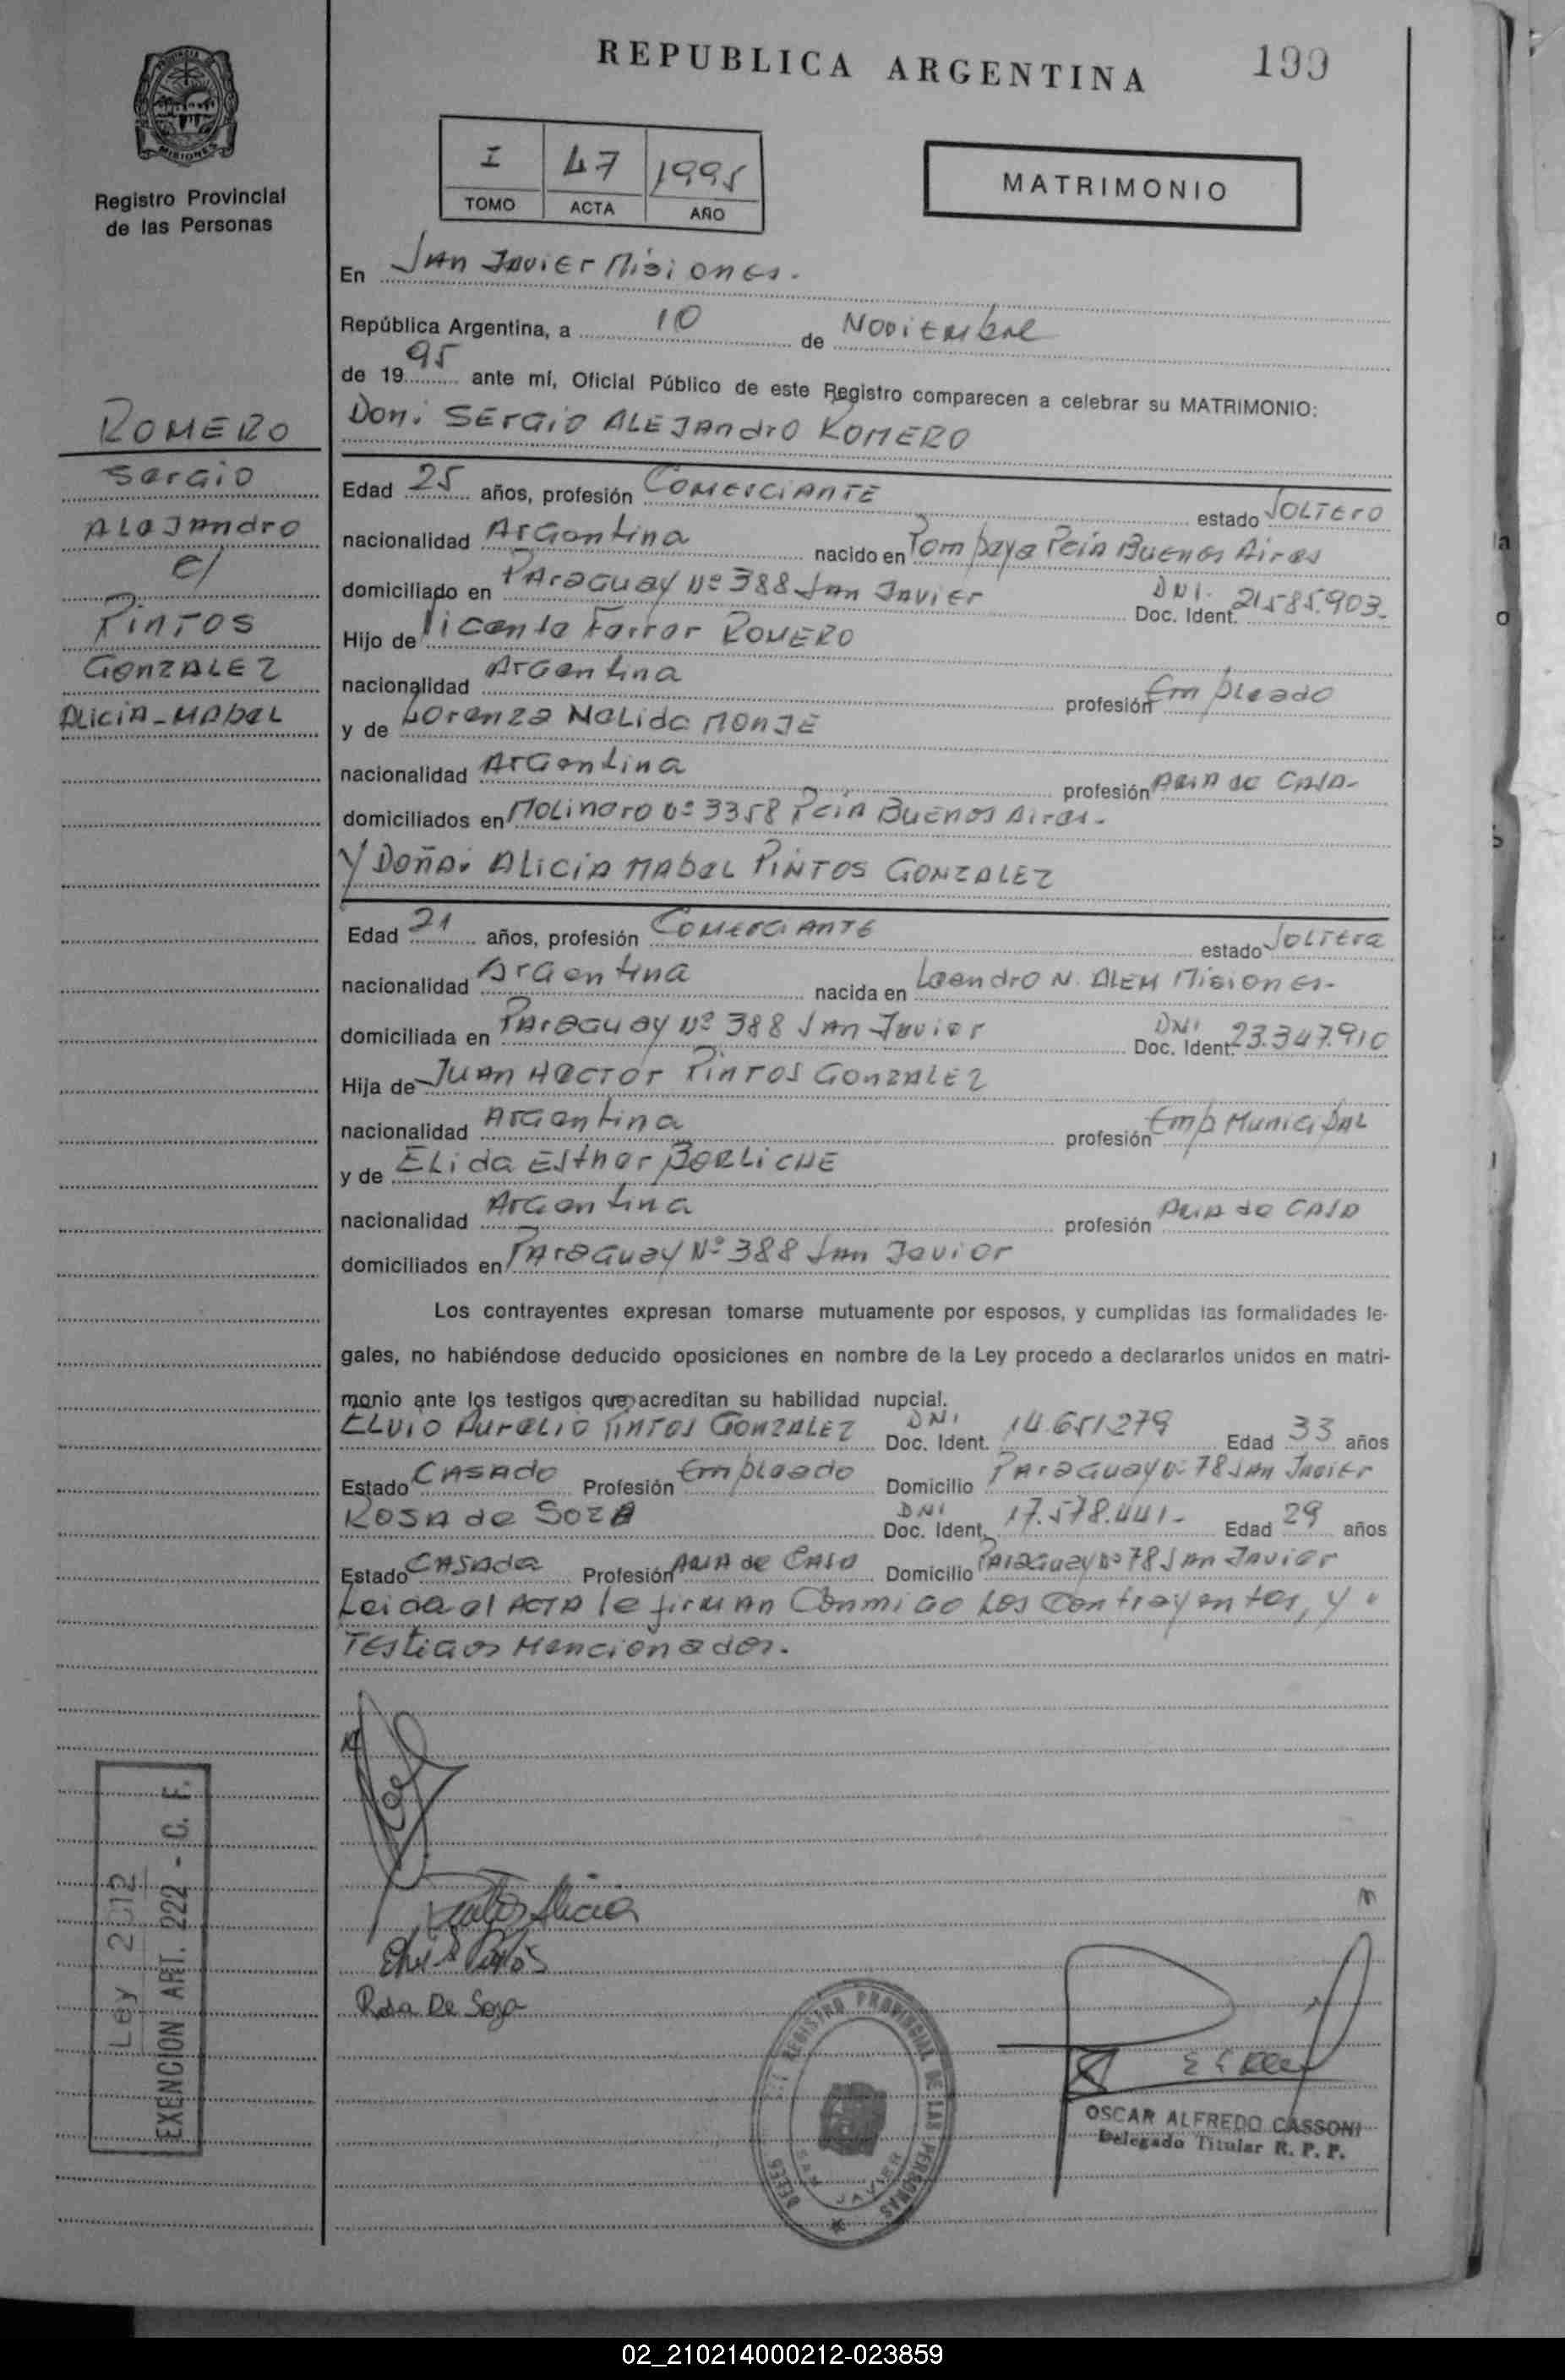 REPUBLICA ARGENTINA
199
PROVINCIA DE
MISIONES
Registro Provincial
de las Personas
I 47 1995
TOMO ACTA AÑO
MATRIMONIO
En San Javier Misiones.
República Argentina, a 10 de Noviembre
de 1995 ante mí, Oficial Público de este Registro comparecen a celebrar su MATRIMONIO:
Don: Sergio Alejandro Romero
ROMERO
Sergio
Alejandro
c/
Pintos
Gonzalez
Alicia-Mabel
Edad 25 años, profesión Comerciante estado Soltero
nacionalidad Argentina nacido en Pompeya Pcia Buenos Aires
domiciliado en Paraguay Nº 388 San Javier Doc. Ident. DNI. 21.585.903-
Hijo de Ferrer ROMERO
nacionalidad Argentina profesión Empleado
y de Lorenza Nelida Monje
nacionalidad Argentina profesión Ama de Casa-
domiciliados en Molinero Nº 3358 Pcia Buenos Aires-
Y Doña: Alicia Mabel Pintos Gonzalez
Edad 21 años, profesión Comerciante estado Soltera
nacionalidad Argentina nacida en Leandro N. Alem Misiones-
domiciliada en Paraguay Nº 388 San Javier Doc. Ident. DNI 23.347.910
Hija de Juan Hector Pintos Gonzalez
nacionalidad Argentina profesión Emp Municipal
y de Elida Esther
nacionalidad Argentina profesión Ama de Casa
domiciliados en Paraguay Nº 388 San Javier
Los contrayentes expresan tomarse mutuamente por esposos, y cumplidas las formalidades le-
gales, no habiéndose deducido oposiciones en nombre de la Ley procedo a declararlos unidos en matri-
monio ante los testigos que acreditan su habilidad nupcial.
Elvio Aurelio Pintos Gonzalez Doc. Ident. DNI 14.651279 Edad 33 años
Estado Casado Profesión Empleado Domicilio Paraguay Nº 78 San Javier
Rosa de Soza Doc. Ident. DNI 17.578.441- Edad 29 años
Estado Casada Profesión Ama de Casa Domicilio Paraguay Nº 78 San Javier
Leida el Acta le firman Conmigo Los Contrayentes, y
Testigos Mencionados.
Pintos Alicia
Rosa De Soza
Ley 2012
EXENCION ART. 222 - C. F.
REGISTRO PROVINCIAL DE LAS PERSONAS
SAN JAVIER
OSCAR ALFREDO CASSONI
Delegado Titular R. P. P.
02_210214000212-023859